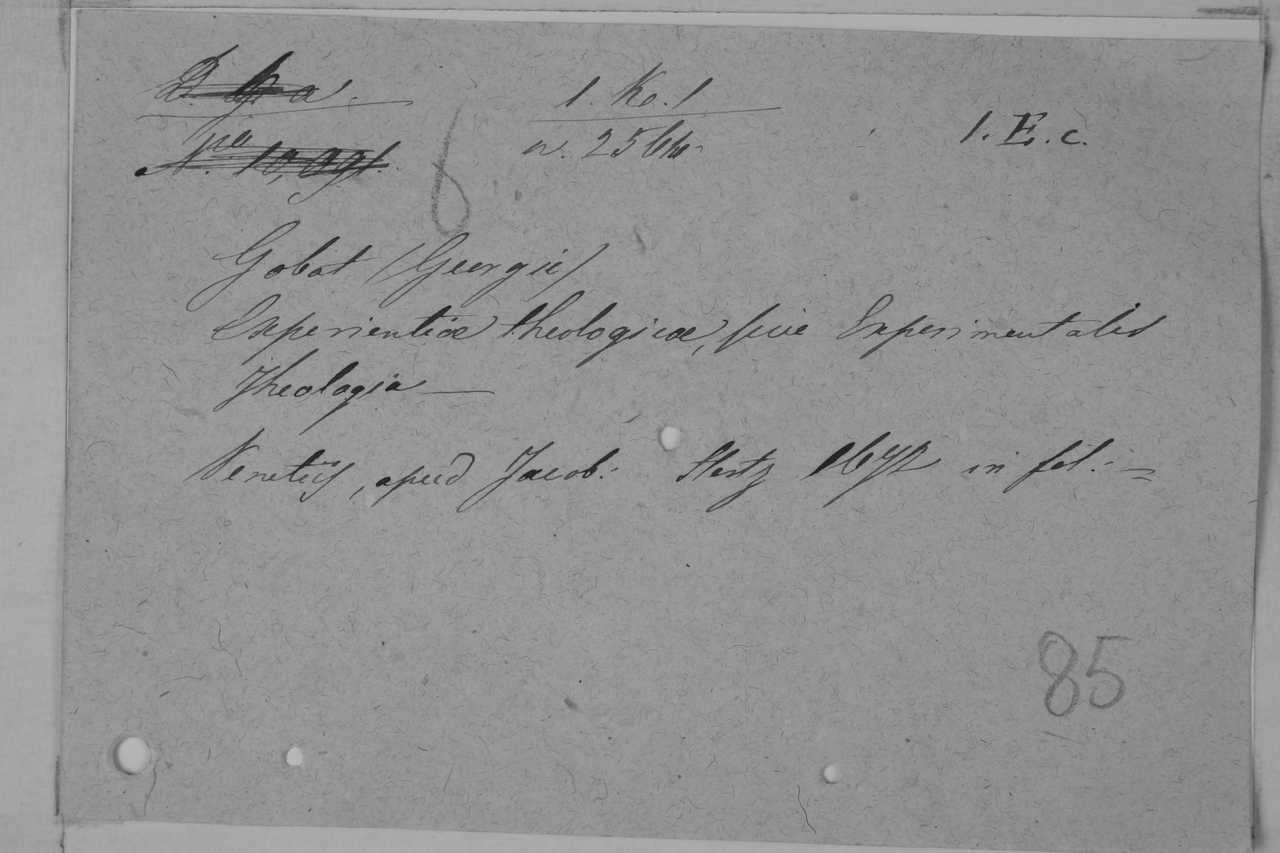 1. Ko. 1
1. E. c.
Gobat (Georgii)
Experientiæ theologicæ, sive Experimentalis
Theologia —
Venetiis, apud Jacob: Hertz 1672 in fol: =
85